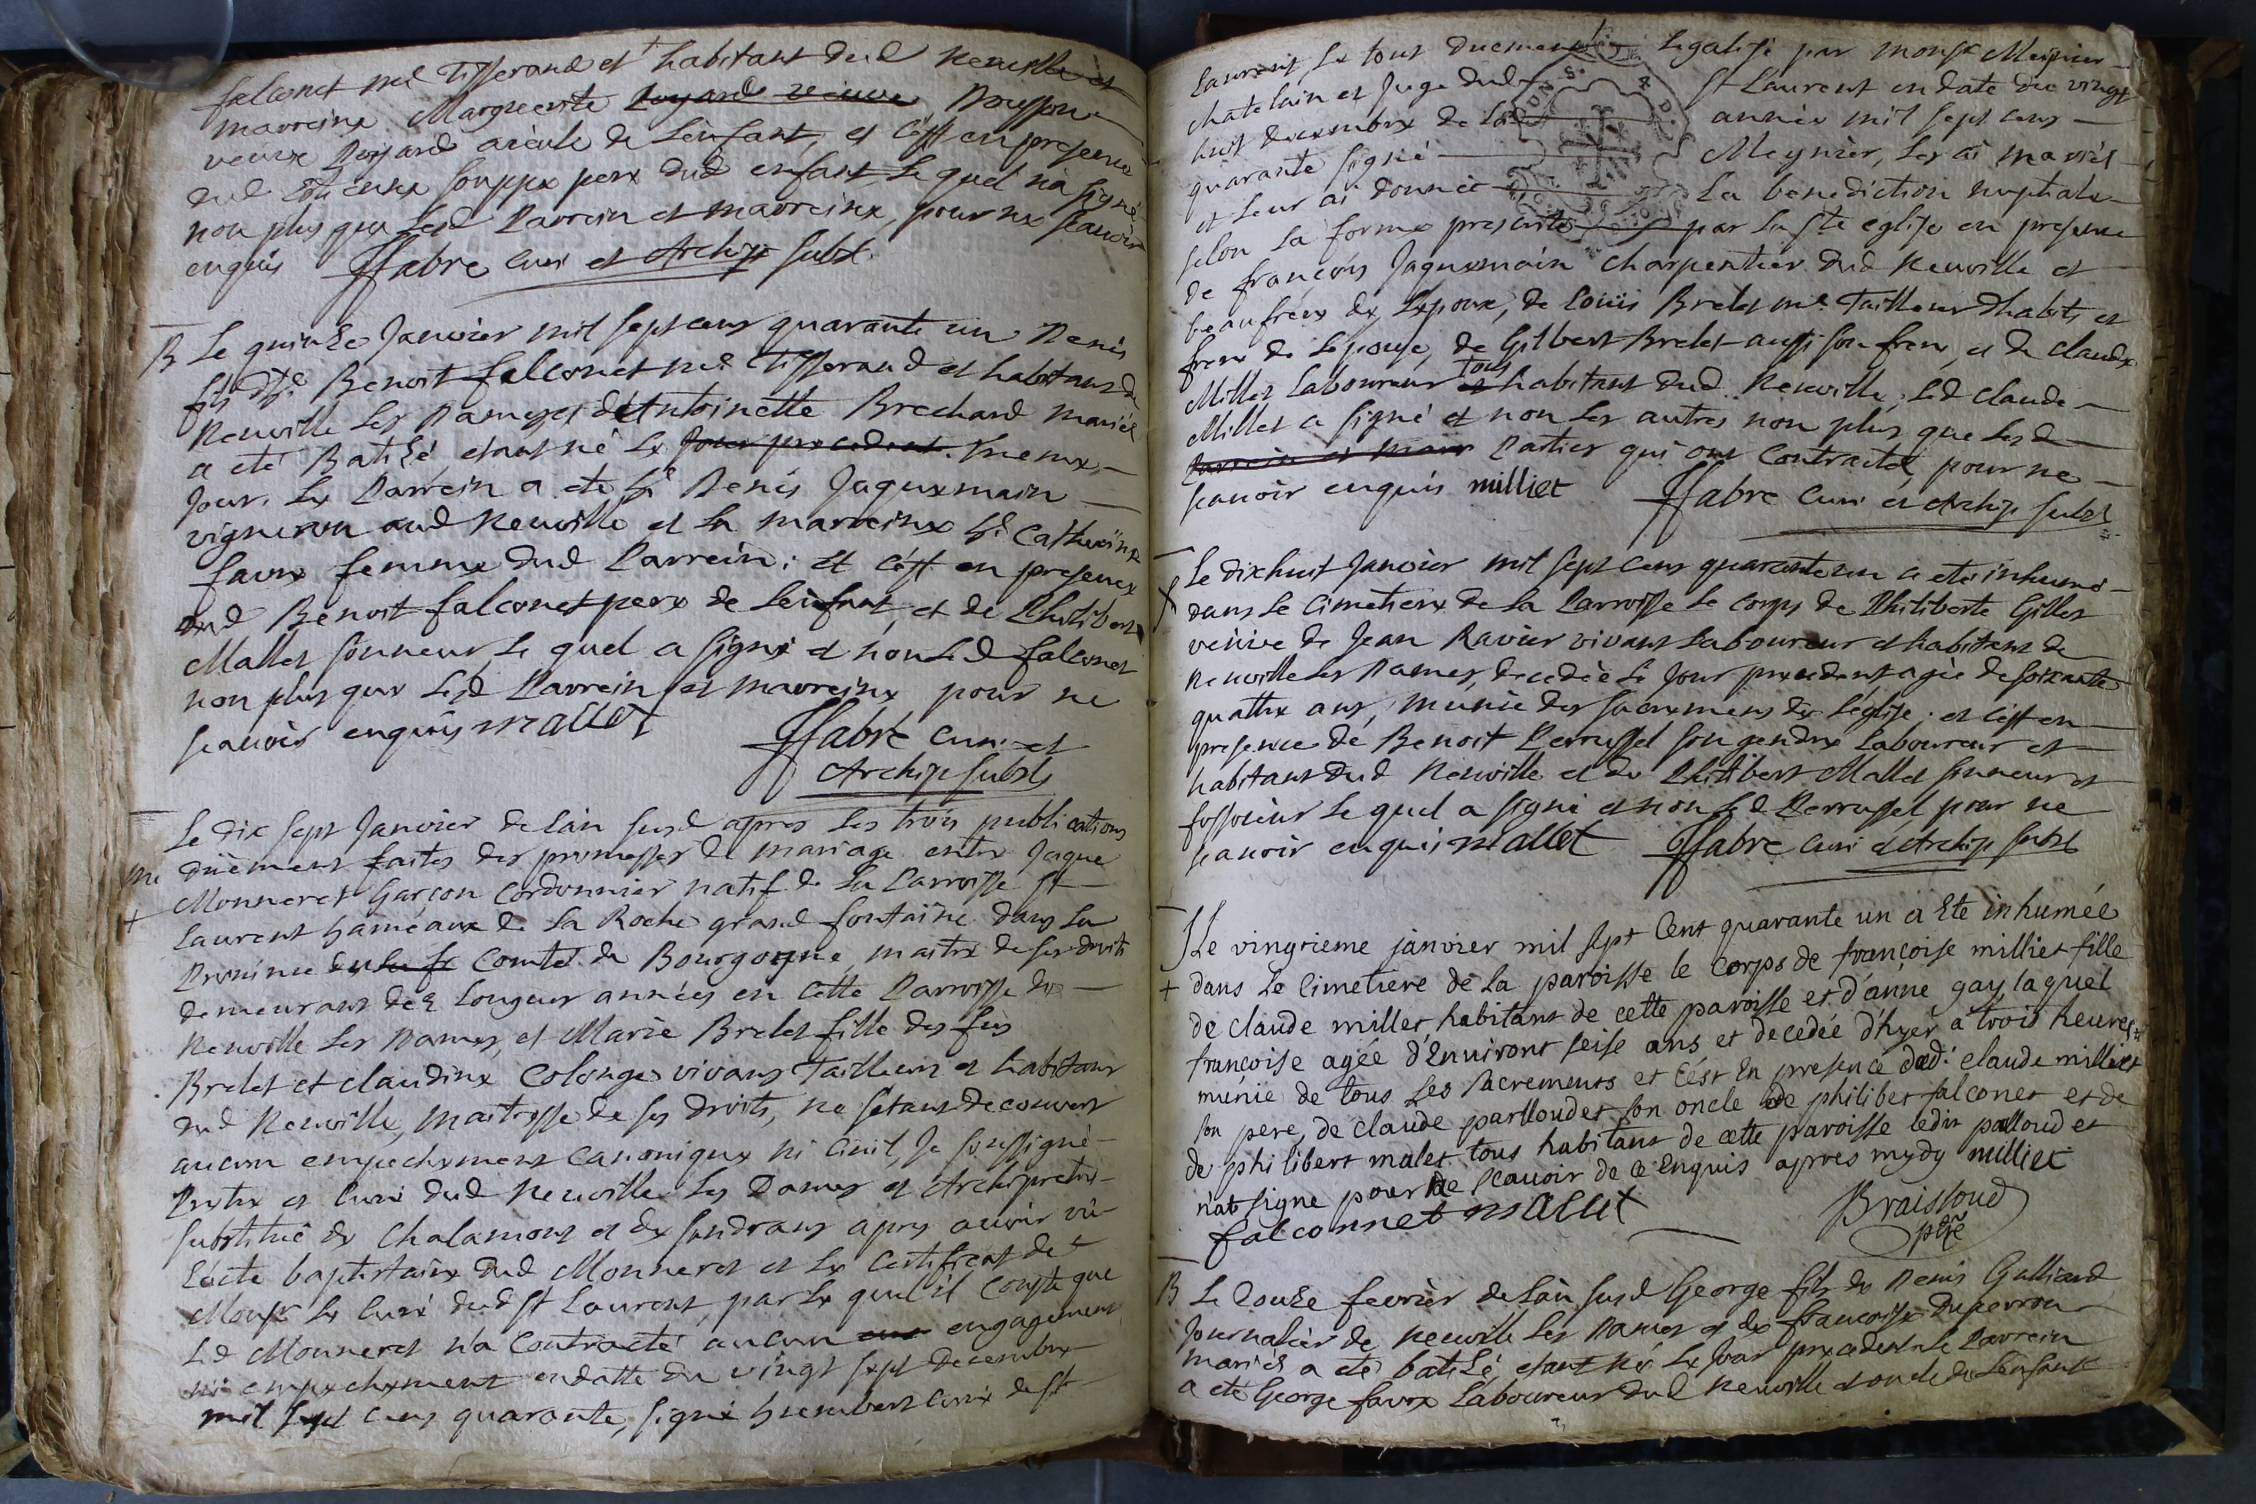 falconet md Tisserand et habitant dud Neuville et
marreine Marguerite Poyard veuve Bouffon
veuve Poyard aieule de Lenfant, et c'est en presence
dud pere dud enfant, Le quel n'a signé
non plus que Lesd Parrein et marreine, pour ne scauoir
enquis ffabre curé et Archip subst.
B Le quinze Janvier mil sept cens quarante un Denis
fils de Benoit falconet md Tisserand et habitant de
Neuville Les Dames et d'Antoinette Brechard mariés
a eté Batizé etant né Le jour precedent. meme
Jour. Le Parrein a ete Denis Jaquemain
vigneron aud Neuville et La marreine Catherine
favre femme dud Parrein; et c'est en presence
dud Benoit falconet pere de Lenfant, et de Philibert
Mallet sonneur, Le quel a signé et non Led falconet
non plus que Lesd Parrein et marreine pour ne
scauoir enquis mallet ffabre curé et
Archip subst
Le dix sept Janvier de L'an susd apres Les trois publications
duement faites des promesses de mariage entre Jaque
me
Monneret Garçon Cordonnier natif de La Parroisse St
+
Laurent hameaux de La Roche grand fontaine dans La
Province de la fr Comté de Bourgogne, maitre de ses droits
demeurant dez Longues années en Cette Parroisse de
Neuville Les Dames, et Marie Brelet fille des feus
Brelet et claudine Colonge vivans Tailleur et habitans
dud Neuville, maitresse de ses droits, ne setant decouvert
aucun empechement canonique ni Civil, Je soussigné
Pretre et Curé dud Neuville Les Dames et Archipretre
substitué de Chalamont et de sandrans apres avoir vû
L'acte baptistaire dud Monneret et Le Certificat de
Monsr Le Curé dud St Laurent, par Le quel il Conste que
Led Monneret n'a Contracté aucun engagement
ni empechement en datte du vingt sept decembre
mil sept cens quarante, signé curé de St
Laurent, Le tout duement Legalisé par Monsr Meynier
chatelain et Juge dud St Laurent en date du vingt
huit decembre de Lad année mil sept cens
quarante signé Meynier, Les ai mariés
et Leur ai donnée La benediction nuptiale
selon La forme prescrite par La ste eglise en presence
de françois Jaquemain charpentier dud Neuville et
beaufrere de L'epoux, de Louis Brelet me Tailleur d'habits et
frere de L'epouse, de Gilbert Brelet aussi son frere, et de claude
Millet Laboureur tous habitant dud Neuville, Led claude
Millet a signé et non Les autres non plus que Lesd
Parrein et marr Parties qui ont Contracté, pour ne
scauoir enquis milliet ffabre Curé et Archip subst
Le dixhuit Janvier mil sept cens quarante un a eté inhumé
dans Le Cimetiere de La Parroisse Le corps de Philiberte Gillet
veuve de Jean Ravier vivant Laboureur et habitant de
Neuville Les Dames, decedée Le Jour precedent agée de soixante
quattre ans, munie des sacremens de L'eglise; et c'est en
presence de Benoit Perrussel son gendre Laboureur et
habitant dud Neuville et de Philibert Mallet sonneur et
fossoieur Le quel a signé et non Led Perrussel pour ne
scauoir enquis mallet ffabre Curé et Archip subst
Le vingtieme janvier mil sept Cent quarante un a Ete inhumée
+ dans Le Cimetiere de La paroisse le Corps de françoise milliet fille
de claude millet habitant de cette paroisse et d'anne gay laquel
françoise agée d'Environt seise ans et decedée d'hyer a trois heures
munie de tous Les sacrements et C'est En presence dud: claude milliet
son pere, de claude parlloudet son oncle de philibet falconet et de
de philibert malet tous habitant de cette paroisse ledit palloud et
nat signe pour ne scauoir de ce Enquis apres mydy milliet
falconnet mallet Braissoud
ptre
B Le douze fevrier de L'an susd George fils de Denis Galliard
Journalier de Neuville Les Dames et de françoise Duperron
mariés a eté batisé, etant né Le Jour precedent Le Parrein
a eté George favre Laboureur dud Neuville et oncle de Lenfant